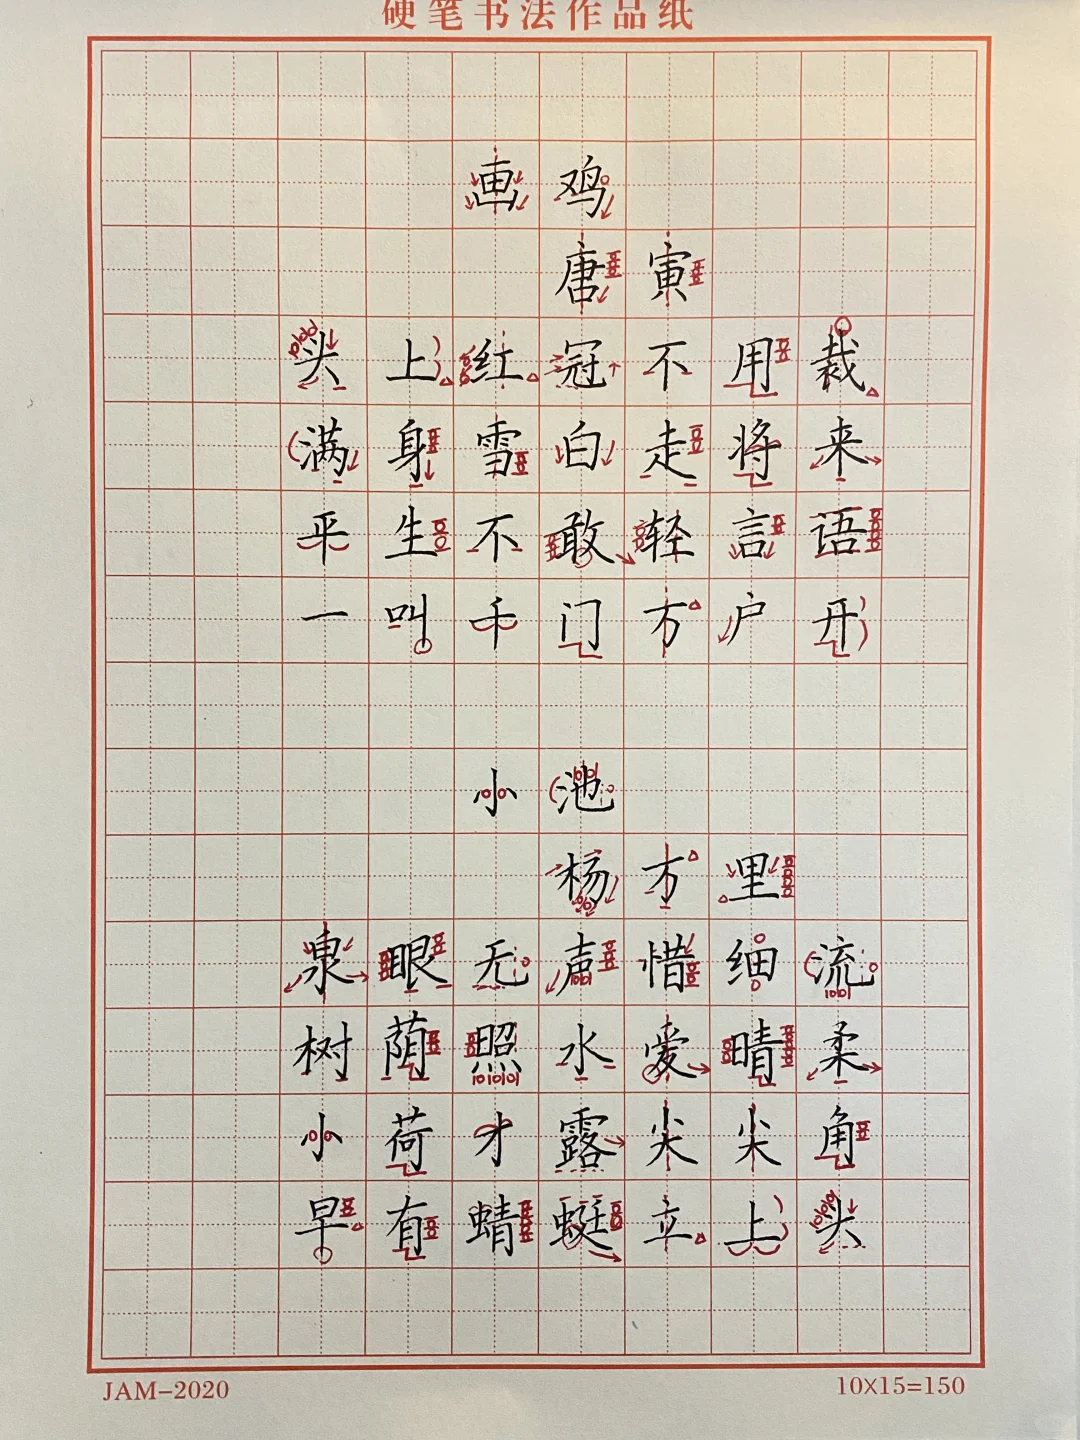 硬笔书法作品纸
画鸡
唐寅
头上红冠不用裁
满身雪白走将来
平生不敢轻言语
一叫千门万户开
小池
杨万里
泉眼无声惜细流
树荫照水爱晴柔
小荷才露尖尖角
早有蜻蜓立上头
JAM-2020
10X15=150